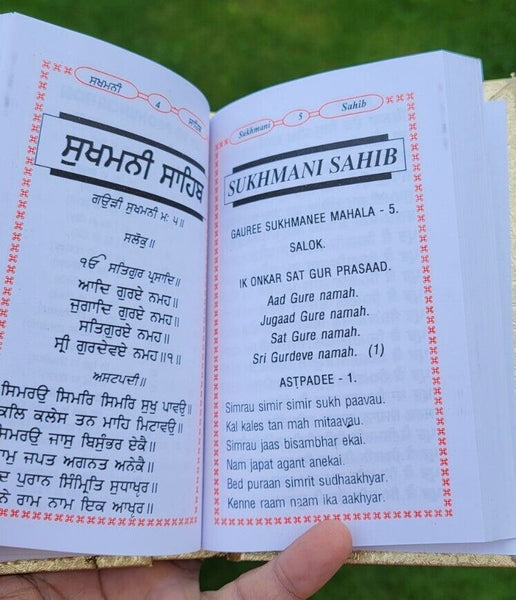 ਸੁਖਮਨੀ 4 ਸਾਹਿਬ
ਸੁਖਮਨੀ ਸਾਹਿਬ
ਗਉੜੀ ਸੁਖਮਨੀ ਮਃ ੫॥
ਸਲੋਕੁ॥
ੴ ਸਤਿਗੁਰ ਪ੍ਰਸਾਦਿ॥
ਆਦਿ ਗੁਰਏ ਨਮਹ॥
ਜੁਗਾਦਿ ਗੁਰਏ ਨਮਹ॥
ਸਤਿਗੁਰਏ ਨਮਹ॥
ਸ੍ਰੀ ਗੁਰਦੇਵਏ ਨਮਹ॥੧॥
ਅਸਟਪਦੀ॥
ਸਿਮਰਉ ਸਿਮਰਿ ਸਿਮਰਿ ਸੁਖੁ ਪਾਵਉ॥
ਕਲਿ ਕਲੇਸ ਤਨ ਮਾਹਿ ਮਿਟਾਵਉ॥
ਸਿਮਰਉ ਜਾਸੁ ਬਿਸੁੰਭਰ ਏਕੈ॥
ਜਪਤ ਅਗਨਤ ਅਨੇਕੈ॥
ਪੁਰਾਨ ਸਿੰਮ੍ਰਿਤਿ ਸੁਧਾਖ੍ਯਰ॥
ਰਾਮ ਨਾਮ ਇਕ ਆਖ੍ਯਰ॥
Sukhmani 5 Sahib
SUKHMANI SAHIB
GAUREE SUKHMANEE MAHALA - 5.
SALOK.
IK ONKAR SAT GUR PRASAAD.
Aad Gure namah.
Jugaad Gure namah.
Sat Gure namah.
Sri Gurdeve namah. (1)
ASTPADEE - 1.
Simrau simir simir sukh paavau.
Kal kales tan mah mitaavau.
Simrau jaas bisambhar ekai.
Nam japat agant anekai.
Bed puraan simrit sudhaakhyar.
Kenne raam naam ika aakhyar.